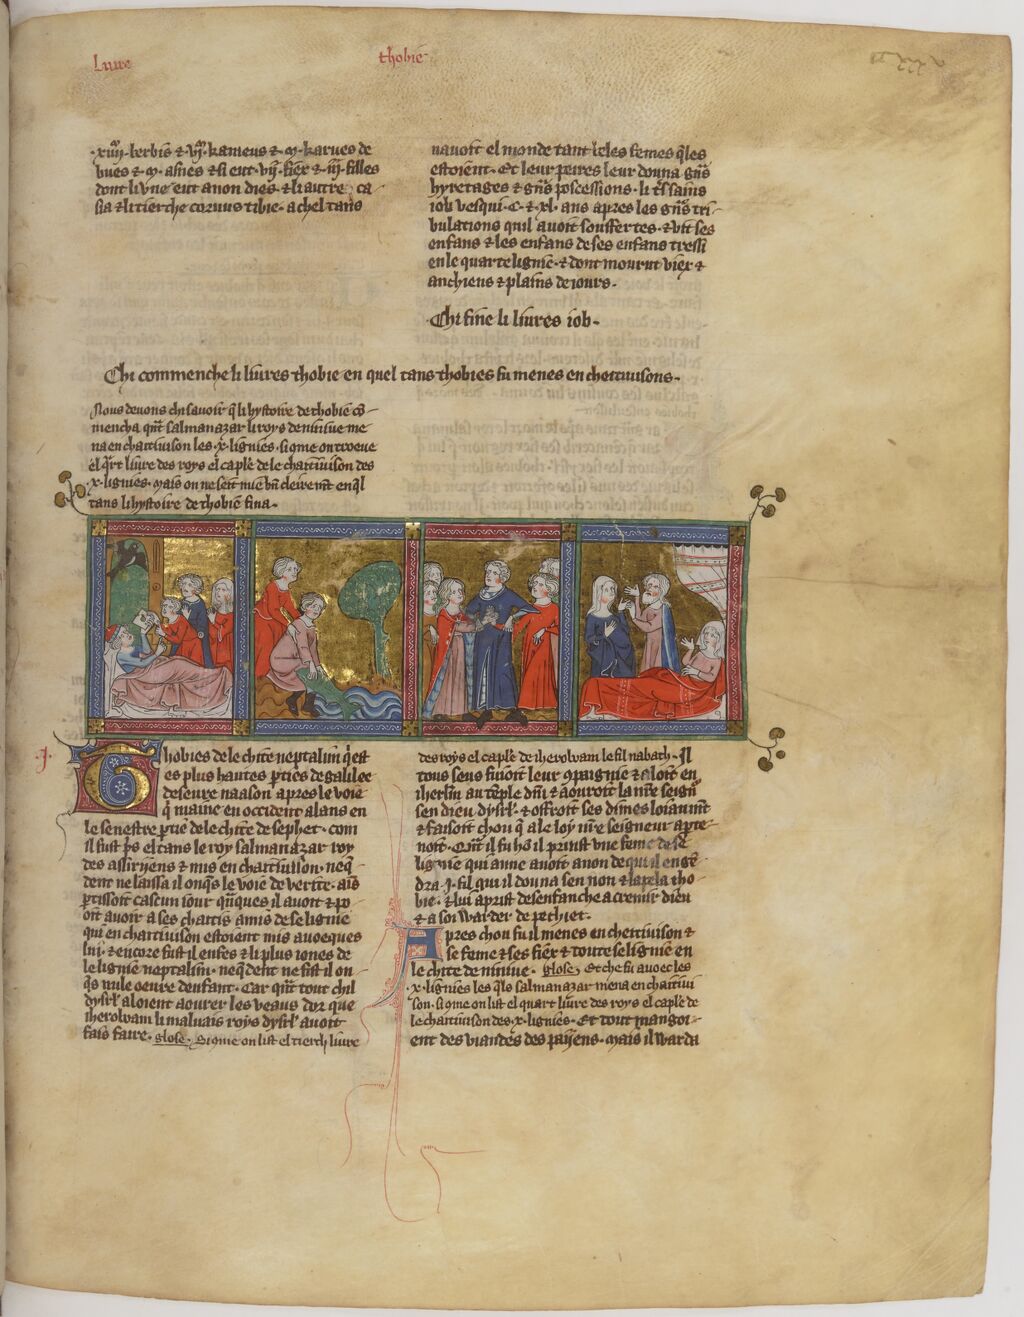 Liure thobie
.xiiij. berbis ⁊ .vj. kameus ⁊ .m. karues de
bues ⁊ .m. asnes ⁊ si eut .vij. fiex ⁊ .iij. filles
dont li vne eut a non dies ⁊ li autre ca
sia ⁊ li tierche cornus tibie. a chel tans
nauoit el monde tant beles femes q̃les
estoient. Et leur peires leur donna gñs
hyretages ⁊ gñs possessions. li t̃s sains
iob vesqui .c. ⁊ .xl. ans apres les gñs tri-
bulations quil auoit souffertes. ⁊ vit ses
enfans ⁊ les enfans de ses enfans tressi
en le quarte lignie. ⁊ dont mourut viex ⁊
anchiens ⁊ plains de iours.
Chi fine li liures iob.
Chi commenche li liures thobie en quel tans thobies fu menes en chettiuisons.
Nous deuons chi sauoir q̃ li hystoire de thobie cõ-
mencha qñt salmanazar li roys de niniue me
na en chaitiuison les .x. lignies. si cme on troeue
el q̃rt liure des roys el caplẽ de le chaitiuison des
.x. lignies. mais on ne seit mie bñ cleiremt̃ en q̃l
tans li hystoire de thobie fina.
.j.
Thobies de le chite neptalim q̃ est
es plus hautes pties de galilee
deseure naason apres le voie
q̃ maine en occident alans en
le senestre partie de le chite de sephet. com
il fust p̃s el tans le roy salmanazar roy
des assiriens ⁊ mis en chaitiuison. neq̃
dent ne laissa il onq̃s le voie de verite. ains
ptissoit cascun iour qñques il auoit ⁊ po
oit auoir a ses chaitis amis de se lignie
qui en chaitiuison estoient mis auoeques
lui. ⁊ encore fust il enfes ⁊ li plus iones de
le lignie neptalim. neq̃dent ne fist il on
q̃s nule oeure denfant. Car qñt tout chil
dysrl̃ aloient aourer les veaus dor que
iherobam li maluais roys dysrl̃ auoit
fais faire. glose. Si cme on list el tierch liure
des roys el caplẽ de iherobam le fil nabath. Il
tous seus fuioit leur cpaignie ⁊ aloit en
ihrlm au tẽple dñi ⁊ aouroit la nr̃e seignr̃
sen dieu dysrl̃. ⁊ offroit ses dimes loiaumt̃
⁊ faisoit chou q̃ a le loy nr̃e seigneur apte-
noit. Qñt il fu hõ il prinst vne feme de se
lignie qui anne auoit a non de qui il engẽ
dra .j. fil qui il douna sen non ⁊ lapela tho
bie. ⁊ lui aprist de senfanche a cremir dieu
⁊ a soi warder de pechiet.
Apres chou fu il menes en chettiuison ⁊
se feme ⁊ ses fiex ⁊ toute se lignie en
le chite de niniue. glose. Et che fu auoec les
.x. lignies les q̃ls salmanazar mena en chaitiui
son. si cme on list el quart liure des roys el caplẽ de
le chaitiuison des .x. lignies. Et tout mangoi-
ent des viandes des paiiens. mais il warda